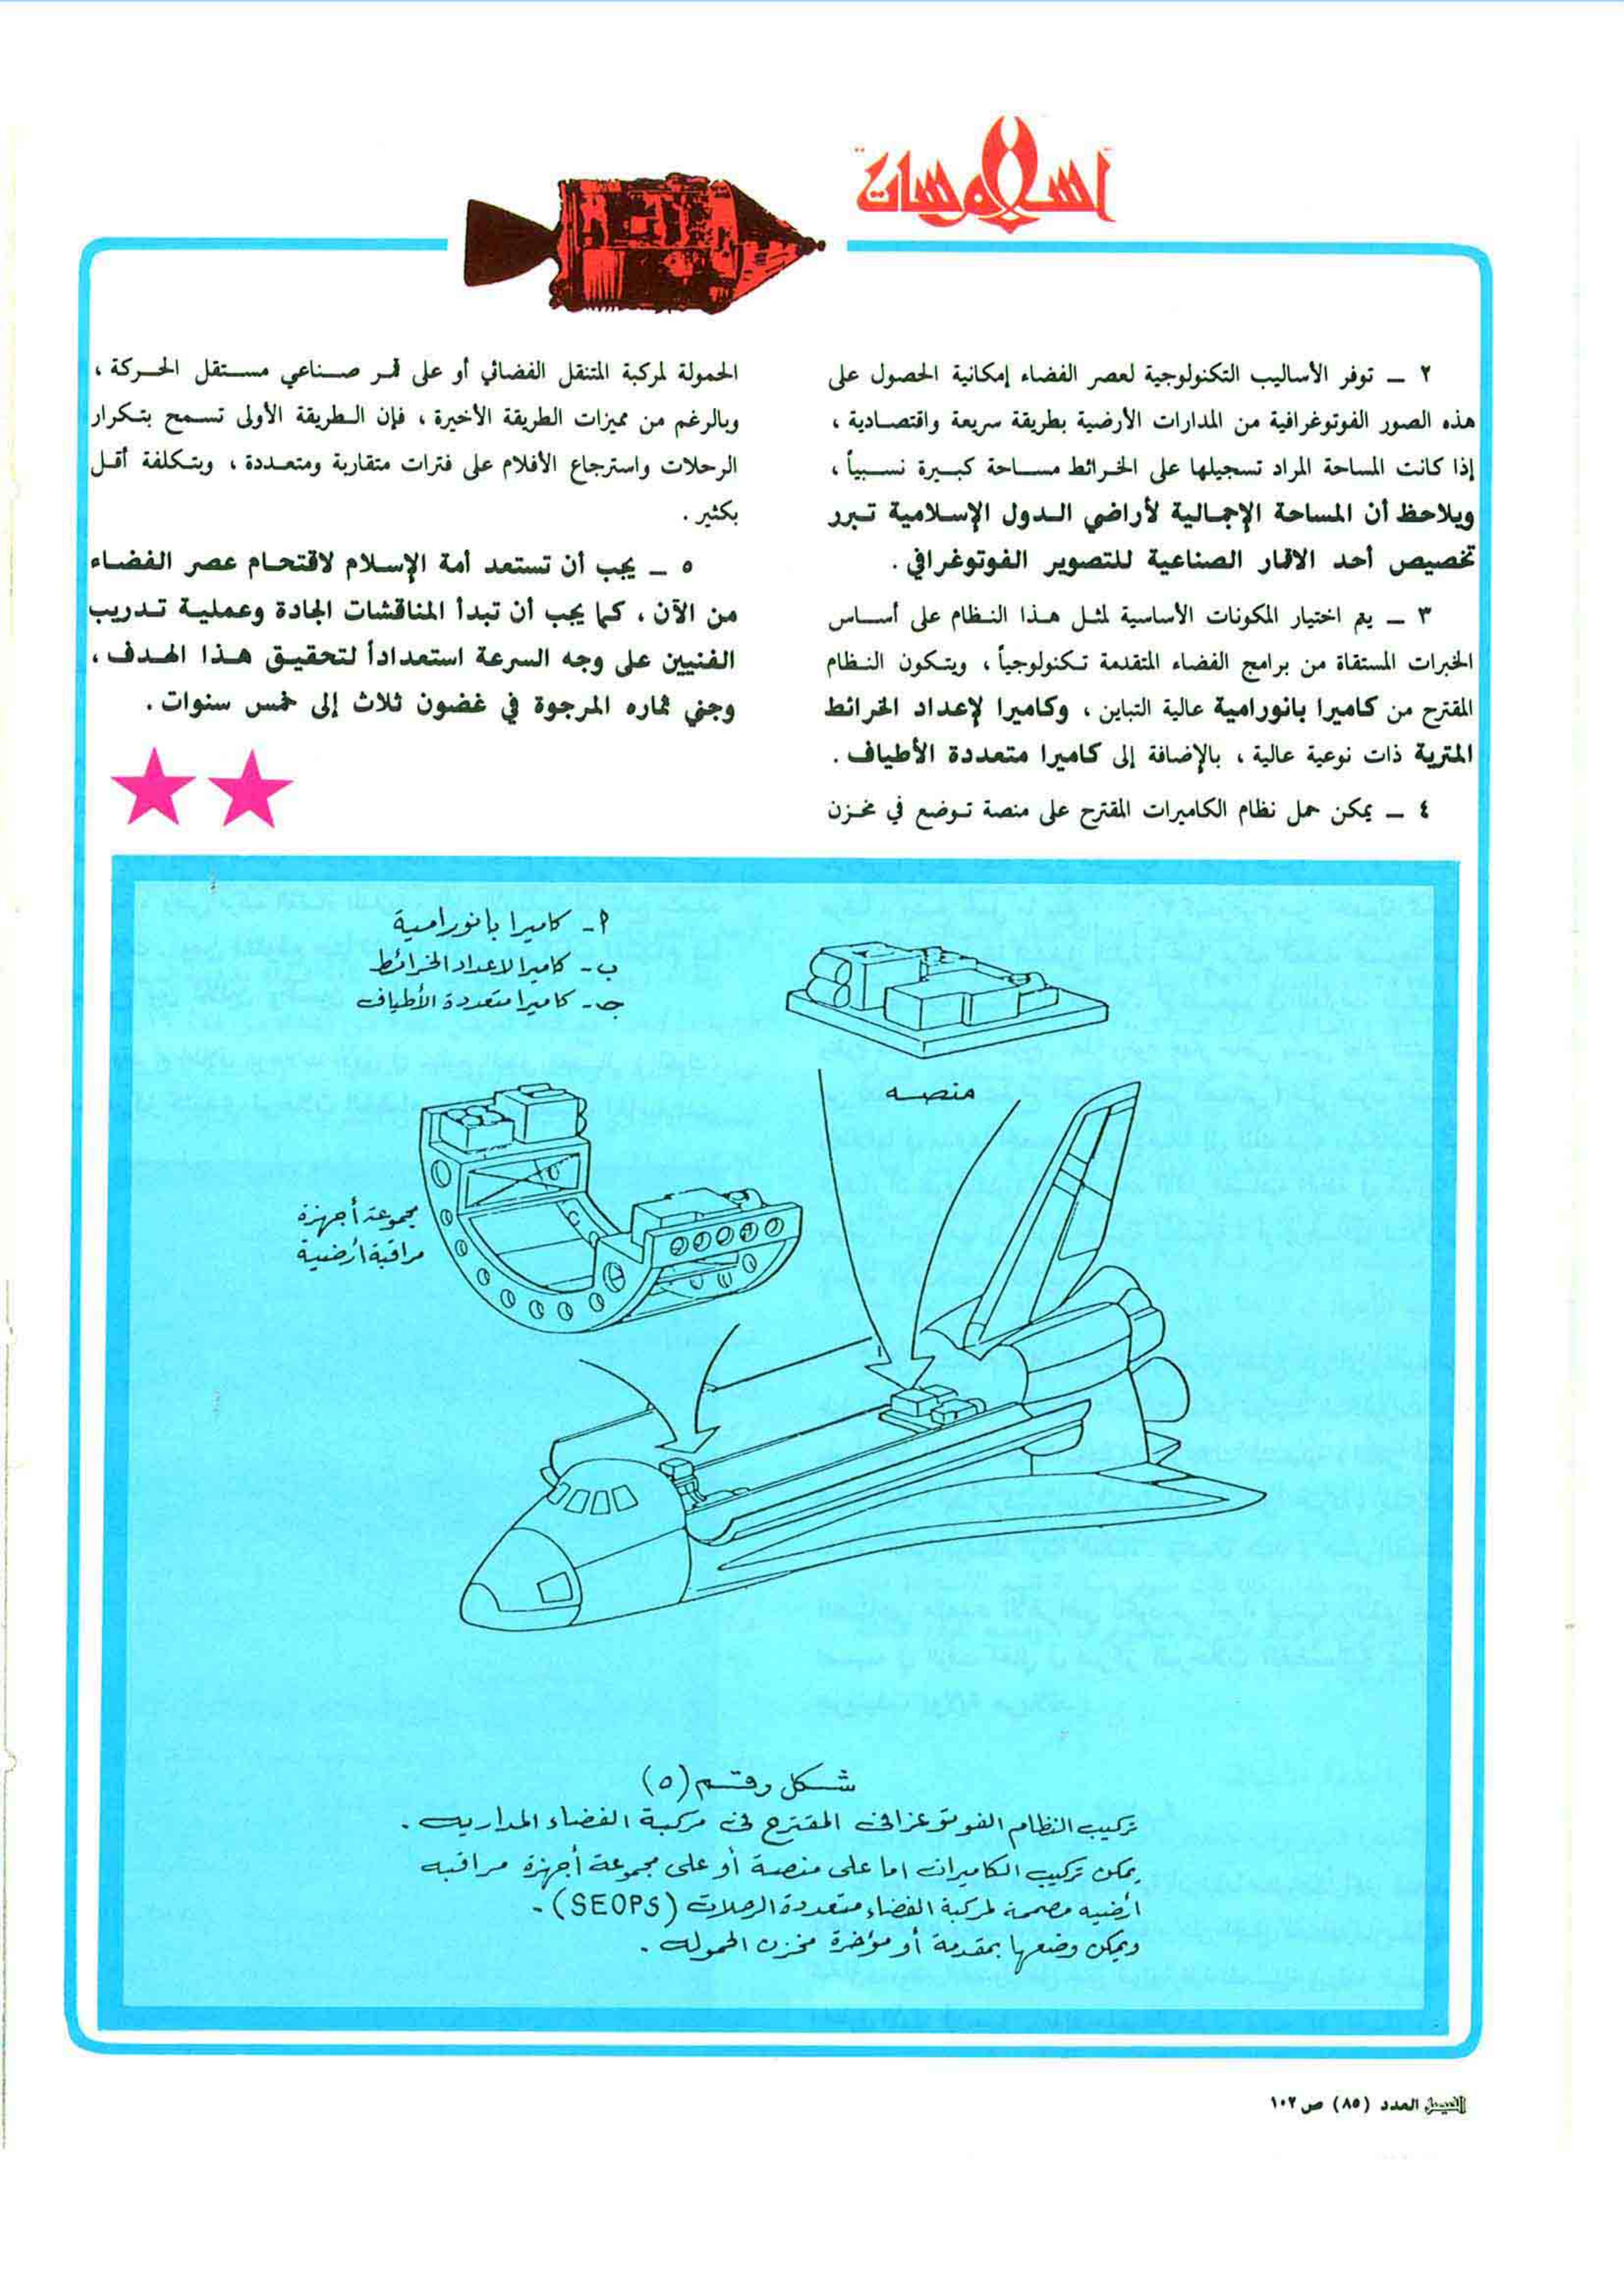 إسلام سات
٢ ــ توفر الأساليب التكنولوجية لعصر الفضاء إمكانية الحصول على
هذه الصور الفوتوغرافية من المدارات الأرضية بطريقة سريعة واقتصادية ،
إذا كانت المساحة المراد تسجيلها على الخرائط مساحة كبيرة نسبياً ،
ويلاحظ أن المساحة الإجمالية لأراضي الدول الإسلامية تبرر
تخصيص أحد الاقمار الصناعية للتصوير الفوتوغرافي .
٣ ــ يتم اختيار المكونات الأساسية لمثل هذا النظام على أساس
الخبرات المستقاة من برامج الفضاء المتقدمة تكنولوجياً ، ويتكون النظام
المقترح من كاميرا بانورامية عالية التباين ، وكاميرا لإعداد الخرائط
المترية ذات نوعية عالية ، بالإضافة إلى كاميرا متعددة الأطياف .
٤ ــ يمكن حمل نظام الكاميرات المقترح على منصة توضع في مخزن
الحمولة لمركبة المتنقل الفضائي أو على قمر صناعي مستقل الحركة ،
وبالرغم من مميزات الطريقة الأخيرة ، فإن الطريقة الأولى تسمح بتكرار
الرحلات واسترجاع الأفلام على فترات متقاربة ومتعددة ، وبتكلفة أقل
بكثير .
٥ ــ يجب أن تستعد أمة الإسلام لاقتحام عصر الفضاء
من الآن ، كما يجب أن تبدأ المناقشات الجادة وعملية تدريب
الفنيين على وجه السرعة استعداداً لتحقيق هذا الهدف ،
وجني ثماره المرجوة في غضون ثلاث إلى خمس سنوات .
أ- كاميرا بانورامية
ب- كاميرا لاعداد الخرائط
جـ- كاميرا متعددة الأطياف
منصه
مجموعة أجهزة
مراقبة أرضية
شكل رقم (٥)
تركيب النظام الفوتوغرافى المقترح فى مركبة الفضاء المداريه .
يمكن تركيب الكاميرات اما على منصة أو على مجموعة أجهزة مراقبه
أرضيه مصممة لمركبة الفضاء متعددة الرحلات (SEOPS) .
ويمكن وضعها بمقدمة أو مؤخرة مخزن الحموله .
الفيصل العدد (٨٥) ص ١٠٢